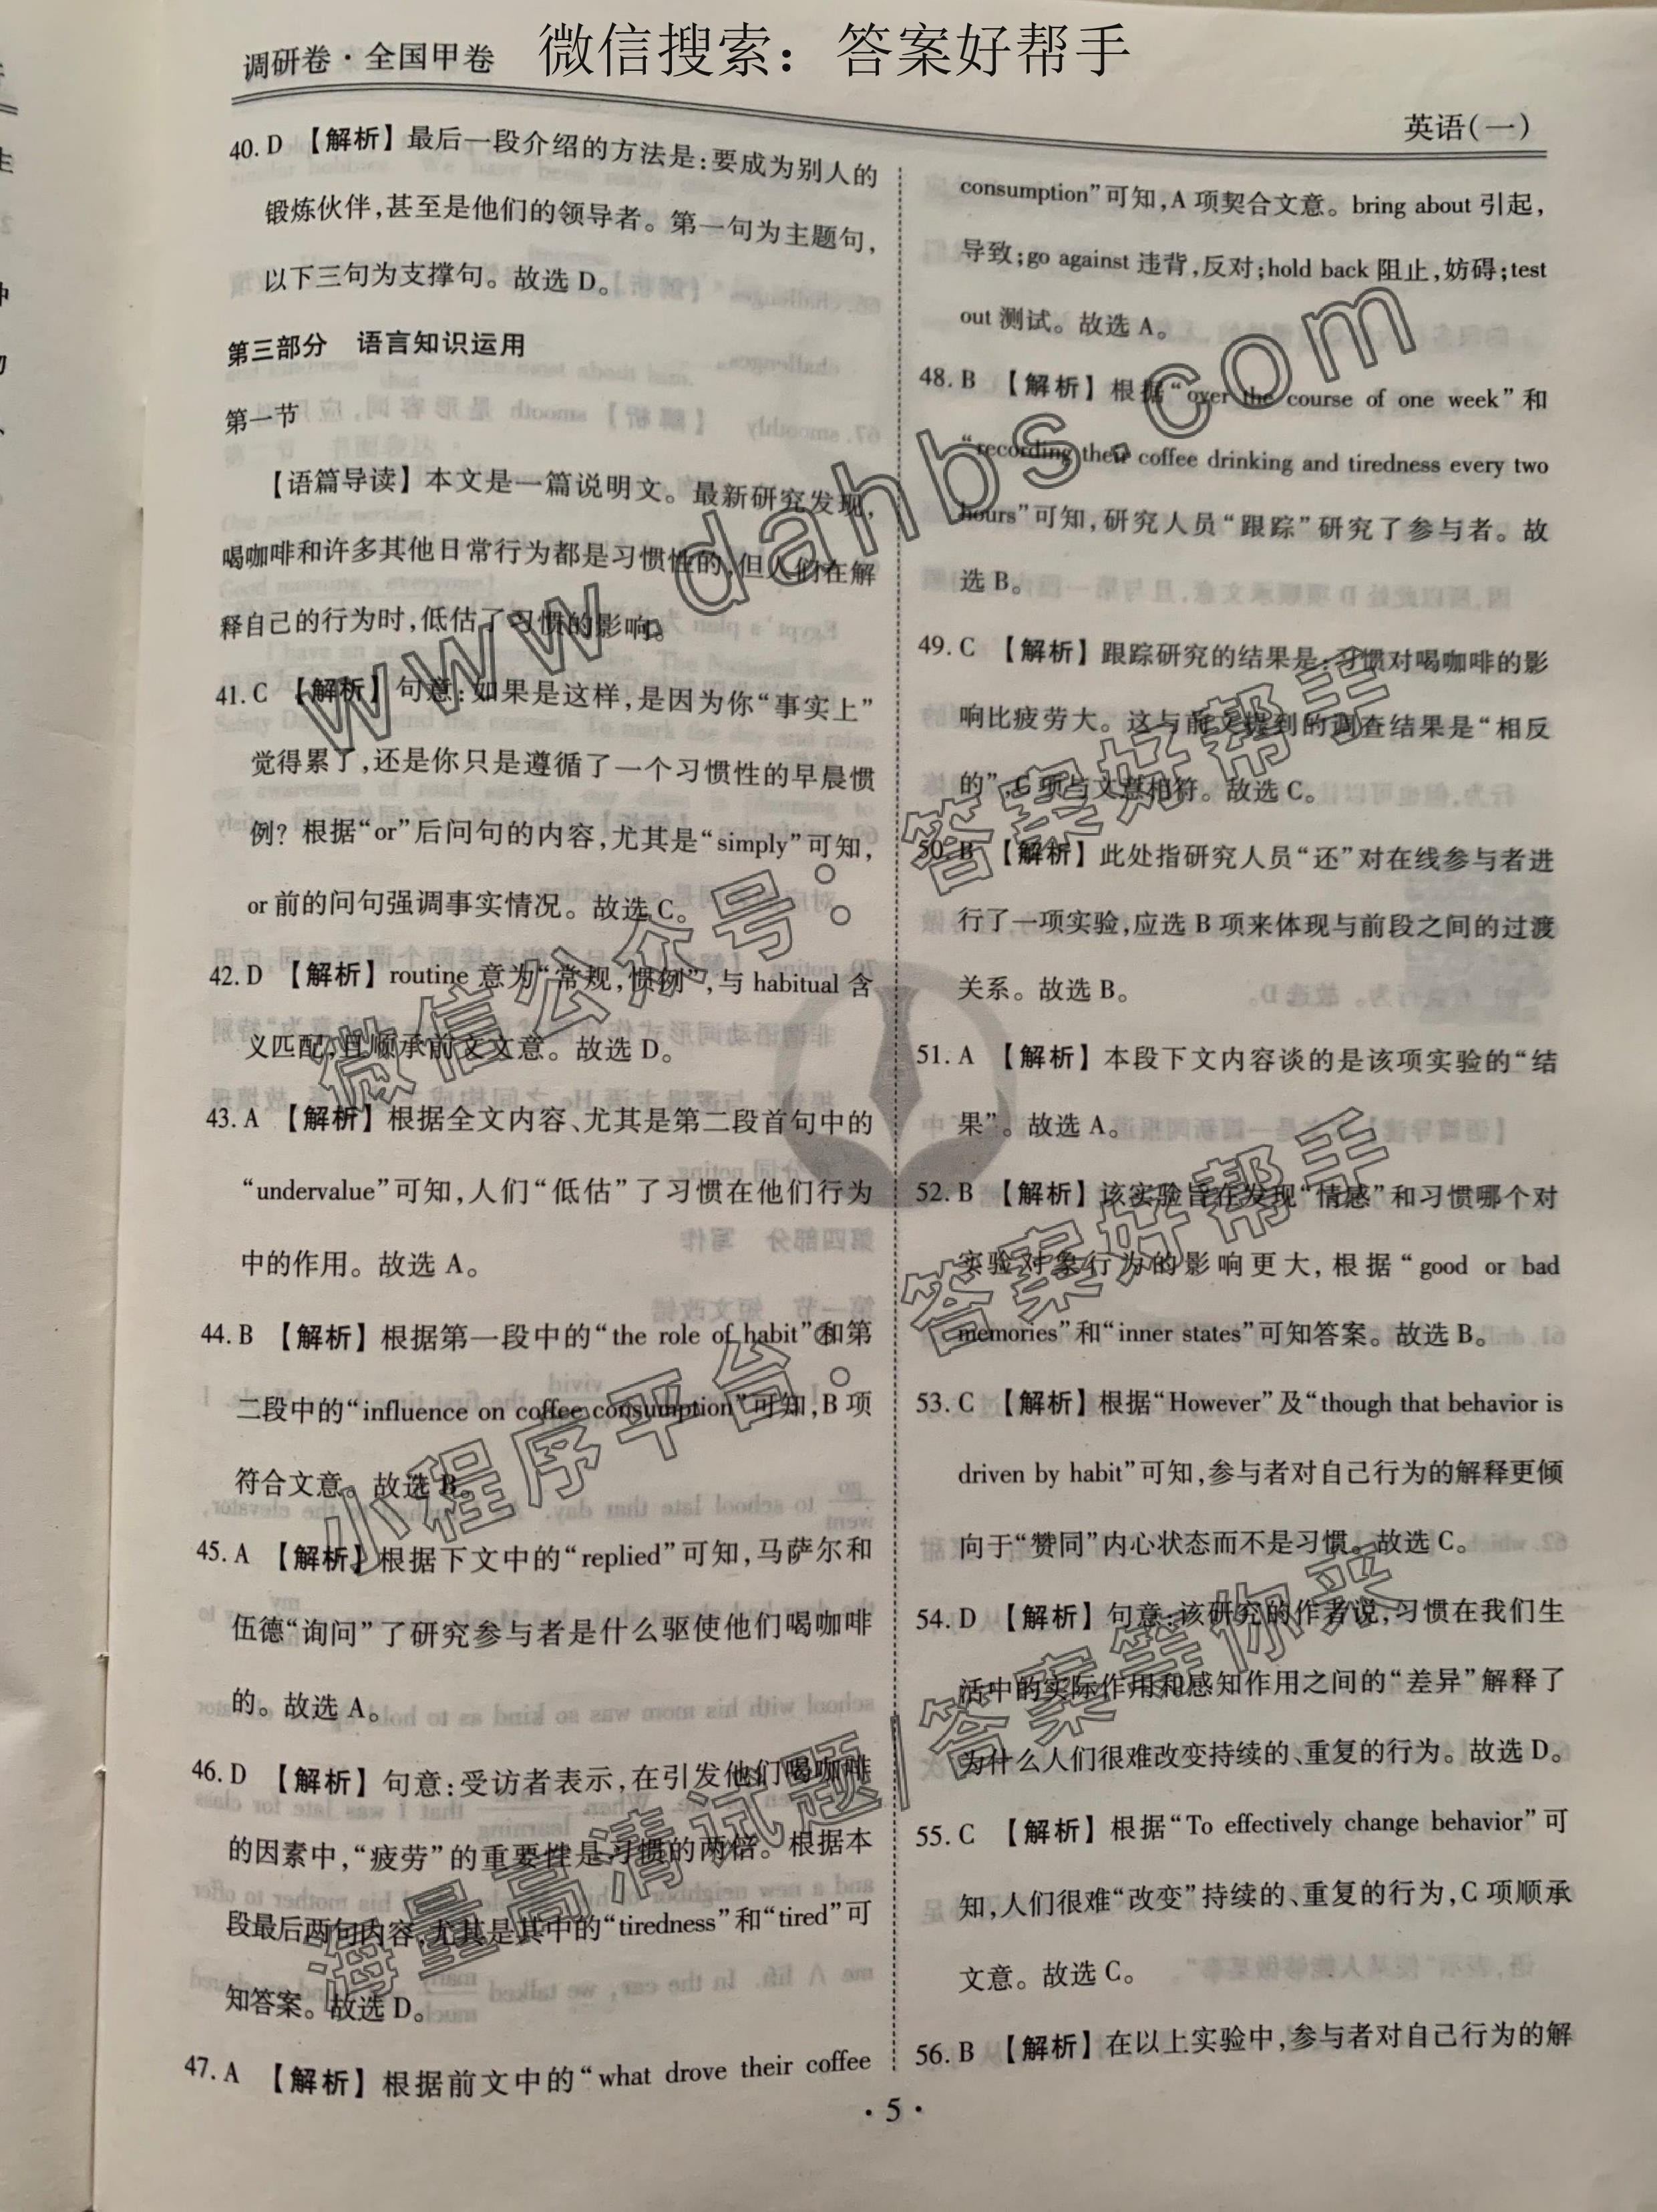 微信搜索：答案好帮手
调研卷·全国甲卷
英语(一)
40. D 【解析】最后一段介绍的方法是:要成为别人的
锻炼伙伴,甚至是他们的领导者。第一句为主题句,
以下三句为支撑句。故选 D。
第三部分 语言知识运用
第一节
【语篇导读】本文是一篇说明文。最新研究发现,
喝咖啡和许多其他日常行为都是习惯性的,但人们在解
释自己的行为时,低估了习惯的影响。
41. C 【解析】句意:如果是这样,是因为你“事实上”
觉得累了,还是你只是遵循了一个习惯性的早晨惯
例? 根据“or”后问句的内容,尤其是“simply”可知,
or 前的问句强调事实情况。故选 C。
42. D 【解析】routine 意为“常规,惯例”,与 habitual 含
义匹配,且顺承前文文意。故选 D。
43. A 【解析】根据全文内容、尤其是第二段首句中的
“undervalue”可知,人们“低估”了习惯在他们行为
中的作用。故选 A。
44. B 【解析】根据第一段中的“the role of habit”和第
二段中的“influence on coffee consumption”可知,B 项
符合文意。故选 B。
45. A 【解析】根据下文中的“replied”可知,马萨尔和
伍德“询问”了研究参与者是什么驱使他们喝咖啡
的。故选 A。
46. D 【解析】句意:受访者表示,在引发他们喝咖啡
的因素中,“疲劳”的重要性是习惯的两倍。根据本
段最后两句内容,尤其是其中的“tiredness”和“tired”可
知答案。故选 D。
47. A 【解析】根据前文中的“what drove their coffee
consumption”可知,A 项契合文意。bring about 引起,
导致;go against 违背,反对;hold back 阻止,妨碍;test
out 测试。故选 A。
48. B 【解析】根据“over the course of one week”和
“recording their coffee drinking and tiredness every two
hours”可知,研究人员“跟踪”研究了参与者。故
选 B。
49. C 【解析】跟踪研究的结果是:习惯对喝咖啡的影
响比疲劳大。这与前文提到的调查结果是“相反
的”,C 项与文意相符。故选 C。
50. B 【解析】此处指研究人员“还”对在线参与者进
行了一项实验,应选 B 项来体现与前段之间的过渡
关系。故选 B。
51. A 【解析】本段下文内容谈的是该项实验的“结
果”。故选 A。
52. B 【解析】该实验旨在发现“情感”和习惯哪个对
实验对象行为的影响更大,根据“good or bad
memories”和“inner states”可知答案。故选 B。
53. C 【解析】根据“However”及“though that behavior is
driven by habit”可知,参与者对自己行为的解释更倾
向于“赞同”内心状态而不是习惯。故选 C。
54. D 【解析】句意:该研究的作者说,习惯在我们生
活中的实际作用和感知作用之间的“差异”解释了
为什么人们很难改变持续的、重复的行为。故选 D。
55. C 【解析】根据“To effectively change behavior”可
知,人们很难“改变”持续的、重复的行为,C 项顺承
文意。故选 C。
56. B 【解析】在以上实验中,参与者对自己行为的解
· 5 ·
www.dahbs.com
微信公众号：答案好帮手
小程序平台：答案好帮手
海量高清试题|答案等你来